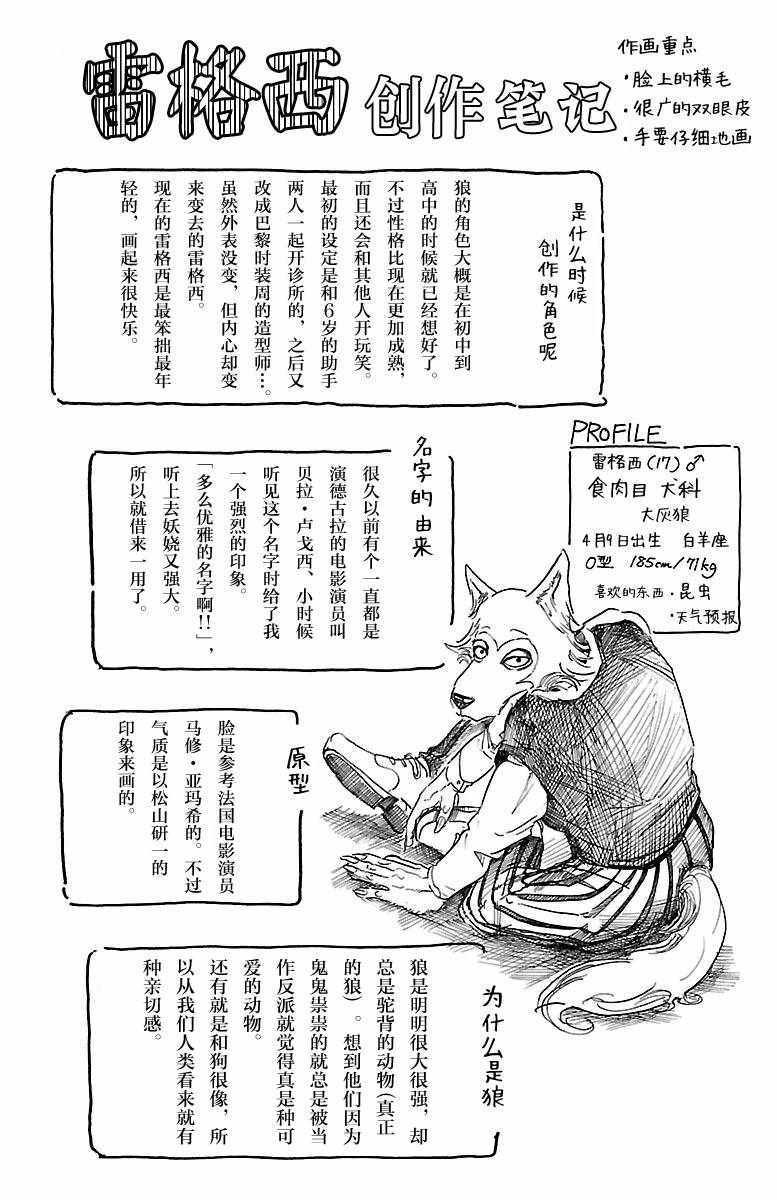 雷格西 创作笔记
作画重点
·脸上的横毛
·很广的双眼皮
·手要仔细地画
是什么时候
创作的角色呢
狼的角色大概是在初中到
高中的时候就已经想好了。
不过性格比现在更加成熟,
而且还会和其他人开玩笑。
最初的设定是和6岁的助手
两人一起开诊所的,之后又
改成巴黎时装周的造型师…。
虽然外表没变,但内心却变
来变去的雷格西。
现在的雷格西是最笨拙最年
轻的,画起来很快乐。
PROFILE
雷格西(17)♂
食肉目 犬科
大灰狼
4月9日出生 白羊座
O型 185cm/71kg
喜欢的东西·昆虫
·天气预报
名字的由来
很久以前有个一直都是
演德古拉的电影演员叫
贝拉·卢戈西、小时候
听见这个名字时给了我
一个强烈的印象。
「多么优雅的名字啊!!」,
听上去妖娆又强大。
所以就借来一用了。
原型
脸是参考法国电影演员
马修·亚玛希的。不过
气质是以松山研一的
印象来画的。
为什么是狼
狼是明明很大很强,却
总是驼背的动物(真正
的狼)。想到他们因为
鬼鬼祟祟的就总是被当
作反派就觉得真是种可
爱的动物。
还有就是和狗很像,所
以从我们人类看来就有
种亲切感。